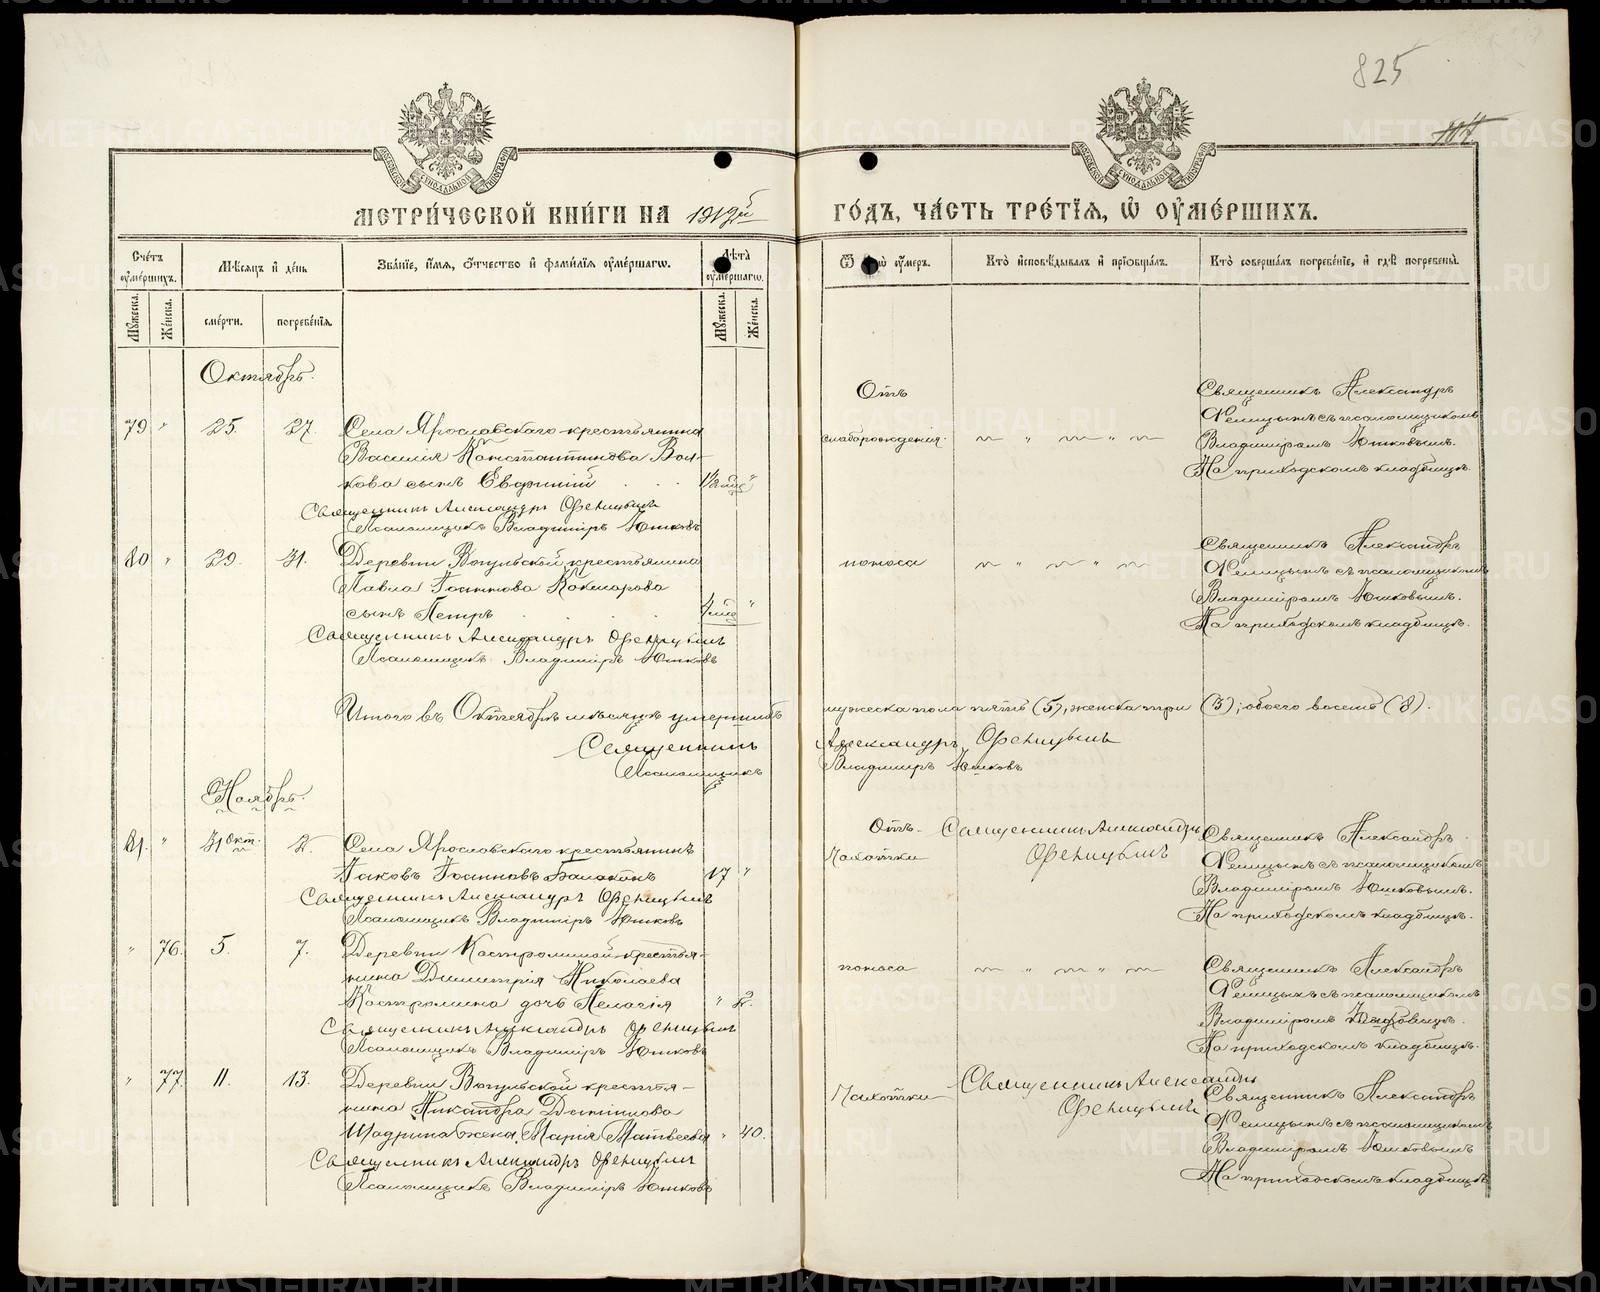 825
МОСКОВСКОЙ СѴНОДАЛЬНОЙ ТИПОГРАФІИ
МОСКОВСКОЙ СѴНОДАЛЬНОЙ ТИПОГРАФІИ
МЕТРИ́ЧЕСКОЙ КНИ́ГИ НА 1912й
ГО́ДЪ, ЧА́СТЬ ТРЕ́ТІѦ, Ѡ҆ ОУ҆МЕ́РШИХЪ.
Сче́тъ оу҆ме́ршихъ.
Мѣ́сяцъ и҆ де́нь
Зва́нїе, и҆́мѧ, ѻ҆́тчество и҆ фами́лїѧ оу҆ме́ршагѡ.
Лѣ́та оу҆ме́ршагѡ.
Ѿ оу҆́меръ.
Кто̀ и҆сповѣ́дывалъ и҆ прїѡбща́лъ.
Кто̀ соверша́лъ погребе́нїе, и҆ гдѣ̀ погребены̀.
Мꙋ́жеска.
Же́нска.
сме́рти.
погребе́нїѧ.
Мꙋ́жеска.
Же́нска.
Октябрь.
79 " 25. 27. Села Ярославскаго крестьянина
Василія Константинова Вол-
кова сынъ Евфимій 1½ мѣс "
Священникъ Александръ Феницынъ
Псаломщикъ Владиміръ Юшковъ
Отъ
слаборожденія.
Священникъ Александръ
Феницынъ съ псаломщикомъ
Владиміромъ Юшковымъ.
На приходскомъ кладбищѣ.
80 " 29. 31. Деревни Вогульской крестьянина
Павла Іоаннова Кокшарова
сынъ Петръ
Священникъ Александръ Феницынъ
Псаломщикъ Владиміръ Юшковъ
поноса
Священникъ Александръ
Феницынъ съ псаломщикомъ
Владиміромъ Юшковымъ.
На приходскомъ кладбищѣ.
Итого въ Октябрѣ мѣсяцѣ умершихъ мужеска пола пять (5), женска три (3); обоего восемь (8).
Священникъ Александръ Феницынъ
Псаломщикъ Владиміръ Юшковъ
Ноябрь.
81. " 31 Окт. 2. Села Ярославскаго крестьянинъ
Іаковъ Іоанновъ Балакинъ 17 "
Священникъ Александръ Феницынъ
Псаломщикъ Владиміръ Юшковъ
Отъ
Чахотки
Священникъ Александръ
Феницынъ
Священникъ Александръ
Феницынъ съ псаломщикомъ
Владиміромъ Юшковымъ.
На приходскомъ кладбищѣ.
" 76. 5. 7. Деревни Костроминой крестья-
нина Димитрія Николаева
Костромина дочь Пелагія " 2.
Священникъ Александръ Феницынъ
Псаломщикъ Владиміръ Юшковъ
поноса
Священникъ Александръ
Феницынъ съ псаломщикомъ
Владиміромъ
На приходскомъ кладбищѣ.
" 77. 11. 13. Деревни Вогульской крестья-
нина Никандра Даніилова
Шадрина жена Марія Матвеева " 40.
Священникъ Александръ Феницынъ
Псаломщикъ Владиміръ Юшковъ
Чахотки
Священникъ Александръ
Феницынъ
Священникъ Александръ
Феницынъ съ псаломщикомъ
Владиміромъ Юшковымъ
На приходскомъ кладбищѣ
METRIKI.GASO-URAL.RU